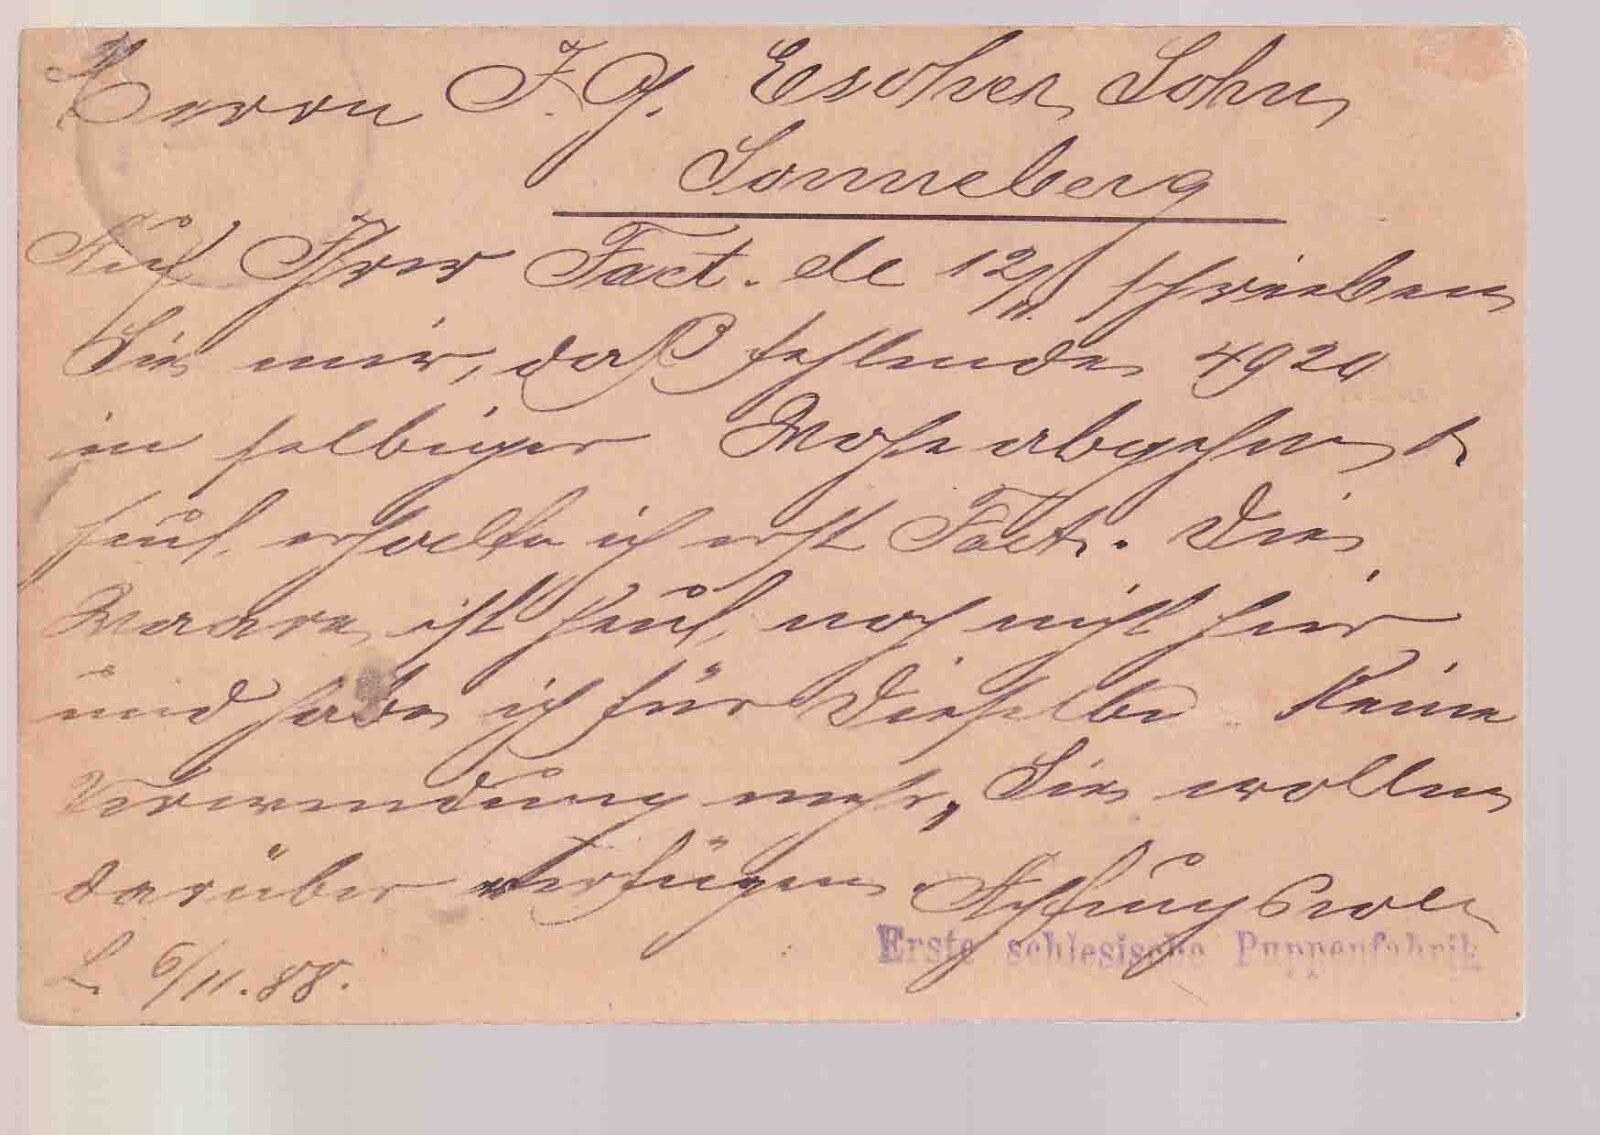 Herrn J. G. Escher Sohn
Sonneberg
Auf Ihrer Fact. de 12/ schrieben
Sie mir, daß fehlende 4920
in selbiger Woche abgehen &
heut erhalte ich erst Fact. Die
Waare ist heut noch nicht hier
und habe ich für dieselbe keine
Verwendung mehr, Sie wollen
darüber verfügen. Achtungsvoll
Erste schlesische Puppenfabrik
L. 6/11.88.